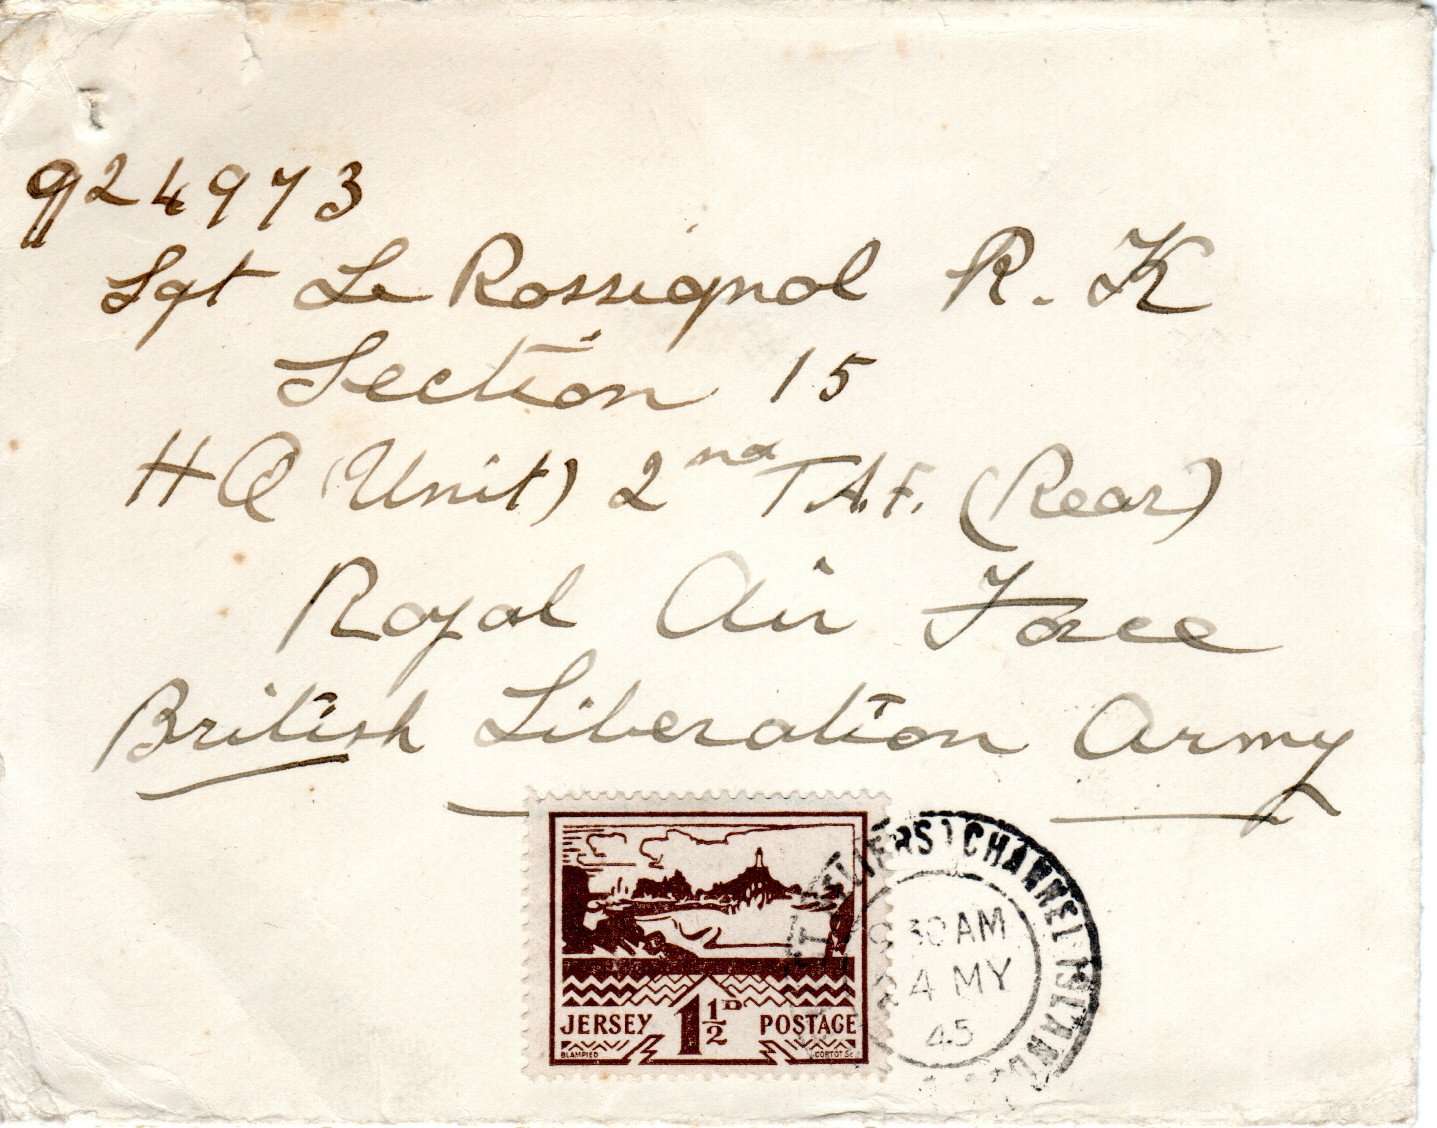 924973
Sgt Le Rossignol R. K
Section 15
HQ (Unit) 2nd T.A.F. (Rear)
Royal Air Force
British Liberation Army
JERSEY 1½D POSTAGE
BLAMPIED CORTOT Sc
ST HELIERS) CHANNEL ISLANDS
30 AM
24 MY
45